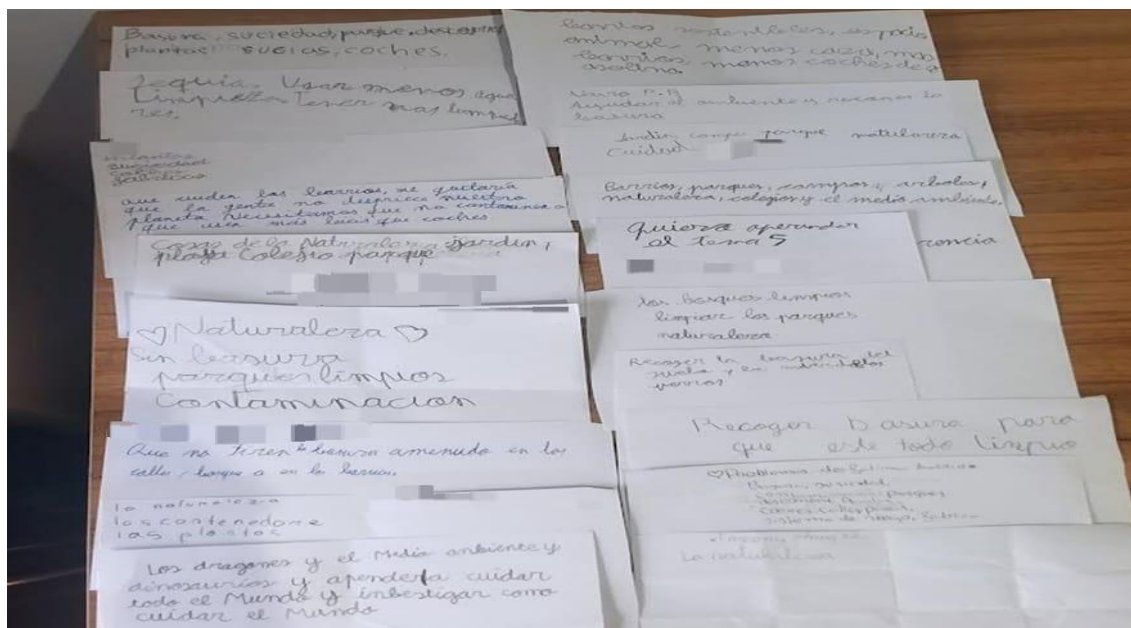 Basura, suciedad, parque,
plantas sucias, coches.
Sequía. Usar menos agua
Limpieza Tener mas
res.
plantas
suciedad
que cuiden los barrios, me gustaría
que la gente no desprecie nuestro
planeta necesitamos que no contaminen
y que usen más bicis que coches
Cosas de la Naturaleza jardín,
playa Colegio parque
♡ Naturaleza ♡
Sin basura
parques limpios
Contaminacion
Que no tiren la basura amenudo en las
calles, bosque a en los barrios.
la naturaleza
los contenedore
las plantas
Los dragones y el Medio anbiente y
dinosaurios y apenderia cuidar
todo el Mundo y inbestigar como
cuidar el Mundo
barrios sostenibles, espacio
animal, menos caza, mas
barrios, menos coches de g
asolina.
Ayudar al ambiente y recoger la
basura
Jardin campo parque naturaleza
Cuidad
Barrios, parques, campos, arboles,
naturaleza, colegios y el medio ambiente.
Quiero aprender
el tema 5
los bosques limpios
limpiar los parques
naturaleza
Recoger la basura del
suelo y la
perros
Recoger basura para
que este todo limpio
♡Problema
Basura, suciedad,
parques
La naturaleza